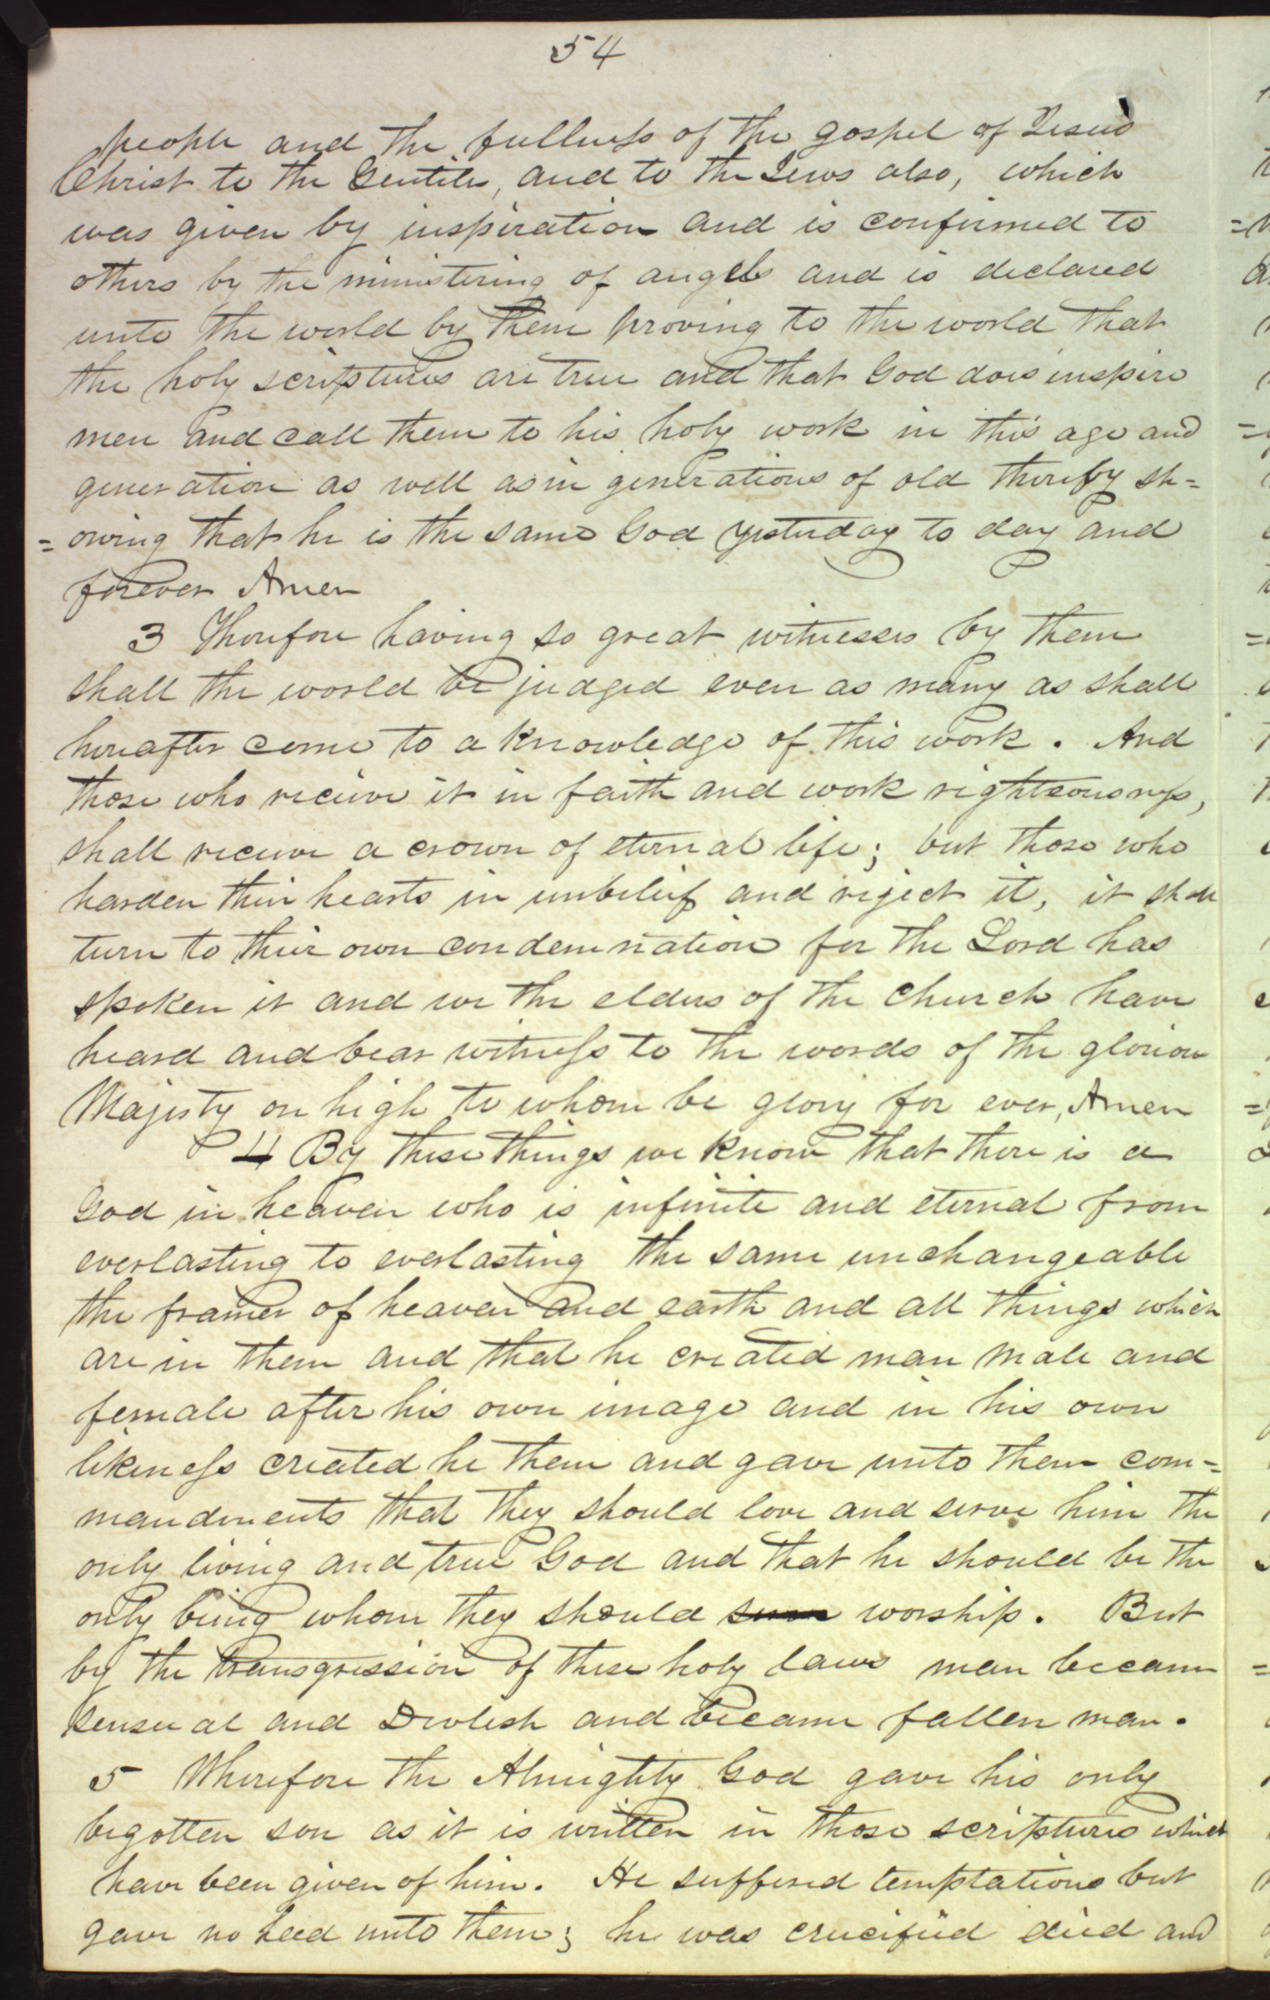 54
people and the fullness of the gospel of Jesus
Christ to the Gentiles, and to the Jews also, which
was given by inspiration and is confirmed to
others by the ministering of angels and is declared
unto the world by them proving to the world that
the holy scriptures are true and that God does inspire
men and call them to his holy work in this age and
generation as well as in generations of old thereby sh=
=owing that he is the same God yesterday to day and
forever Amen
3 Therefore having so great witnesses by them
shall the world be judged even as many as shall
hereafter come to a knowledge of this work. And
those who receive it in faith and work righteousness,
shall receive a crown of eternal life; but those who
harden their hearts in unbelief and reject it, it shall
turn to their own condemnation for the Lord has
spoken it and we the elders of the church have
heard and bear witness to the words of the glorious
Majesty on high to whom be glory for ever, Amen
4 By these things we know that there is a
God in heaven who is infinite and eternal from
everlasting to everlasting the same unchangeable
the framer of heaven and earth and all things which
are in them and that he created man male and
female after his own image and in his own
likeness created he them and gave unto them com=
mandments that they should love and serve him the
only living and true God and that he should be the
only being whom they should worship. But
by the transgression of these holy laws man became
sensual and Devlish and became fallen man.
5 Wherefore the Almighty God gave his only
begotten son as it is written in those scriptures which
have been given of him. He suffered temptations but
gave no heed unto them; he was crucified died and